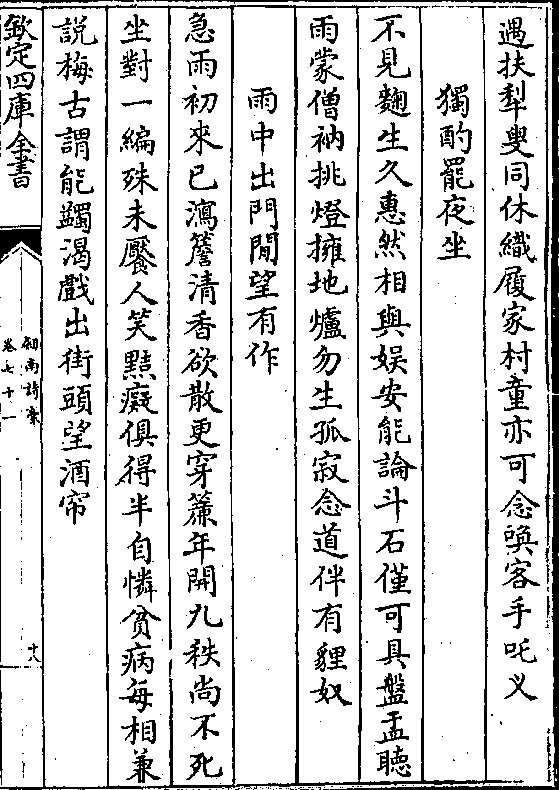 遇扶犁叟同休織屨家村童亦可念喚客手吒义
獨酌罷夜坐
不見麴生久惠然相與娱安能論斗石僅可具盤盂聴
雨蒙僧衲挑燈擁地爐勿生孤寂念道伴有貍奴
雨中出門閒望有作
急雨初來已瀉簷清香欲散更穿簾年開九秩尚不死
坐對一編殊未饜人笑黠癡俱得半自憐貧病每相兼
説梅古謂能蠲渴戲出街頭望酒帘
欽定四庫全書
劍南詩稾
卷七十一
十八